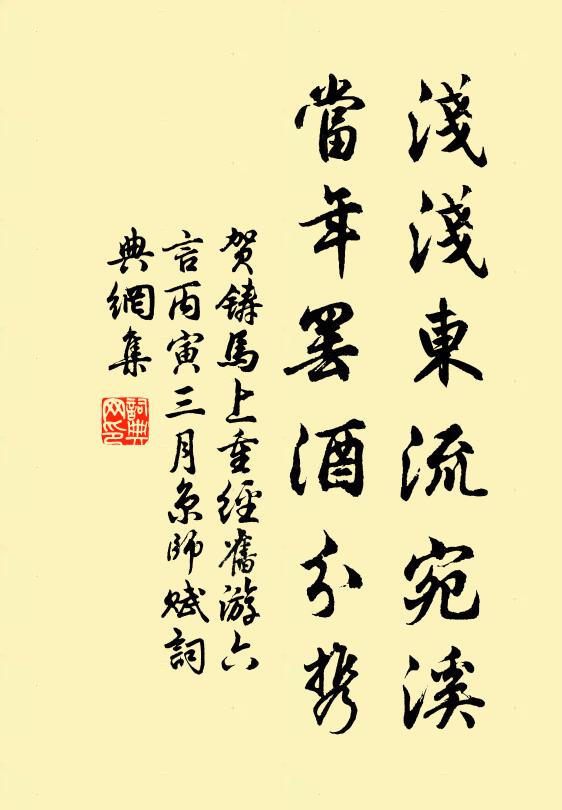 淺淺東流宛溪
當年罷酒分攜
賀鑄馬上重經舊游六
言丙寅三月京師賦詞
典網集
詞典
网印